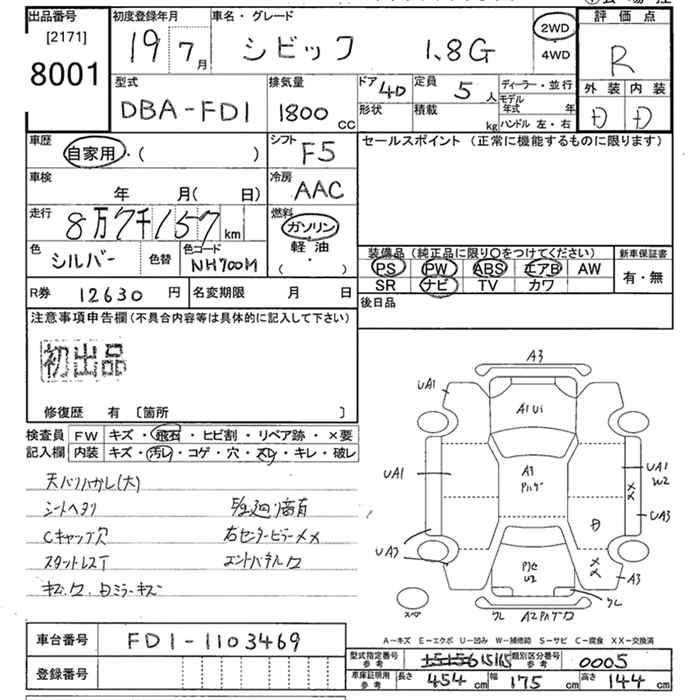 出品番号
[2171]
8001
初度登録年月
19年7月
車名・グレード
シビック 1.8G
2WD
4WD
評価点
R
外装 内装
型式
DBA-FD1
排気量
1800 CC
ドア 4D
形状
定員 5人
積載 kg
ディーラー・並行
モデル年式 年
ハンドル 左・右
車歴
自家用・( )
シフト
F5
車検
年 月( 日)
冷房
AAC
走行
8万7千157km
燃料
ガソリン
軽油
( ・ )
色
シルバー
色替
色コード
NH700M
セールスポイント (正常に機能するものに限ります)
装備品(純正品に限り〇をつけてください)
PS PW ABS エアB AW
SR ナビ TV カワ
新車保証書
有・無
R券 12630 円
名変期限 月 日
後日品
注意事項申告欄(不具合内容等は具体的に記入して下さい)
初出品
修復歴 有 〔箇所 〕
検査員記入欄
FW キズ・飛石・ヒビ割・リペア跡・×要
内装 キズ・汚レ・コゲ・穴・スレ・キレ・破レ
天バリハガレ(大)
シートヘタリ
Cキャップ欠
スタットレスT
右センターピラーメメ
エンドパネルワ
A3
UA1
A1 U1
UA1
A3
UA1
W2
UA3
UA3
A3
スペア
ワレ
ワレ
A-キズ E-エクボ U-凹み W-補修跡 S-サビ C-腐食 XX-交換済
車台番号
FD1-1103469
登録番号
型式指定番号 参考
15165
類別区分番号 参考
0005
車庫証明用 参考
長さ 454 cm
幅 175 cm
高さ 144 cm